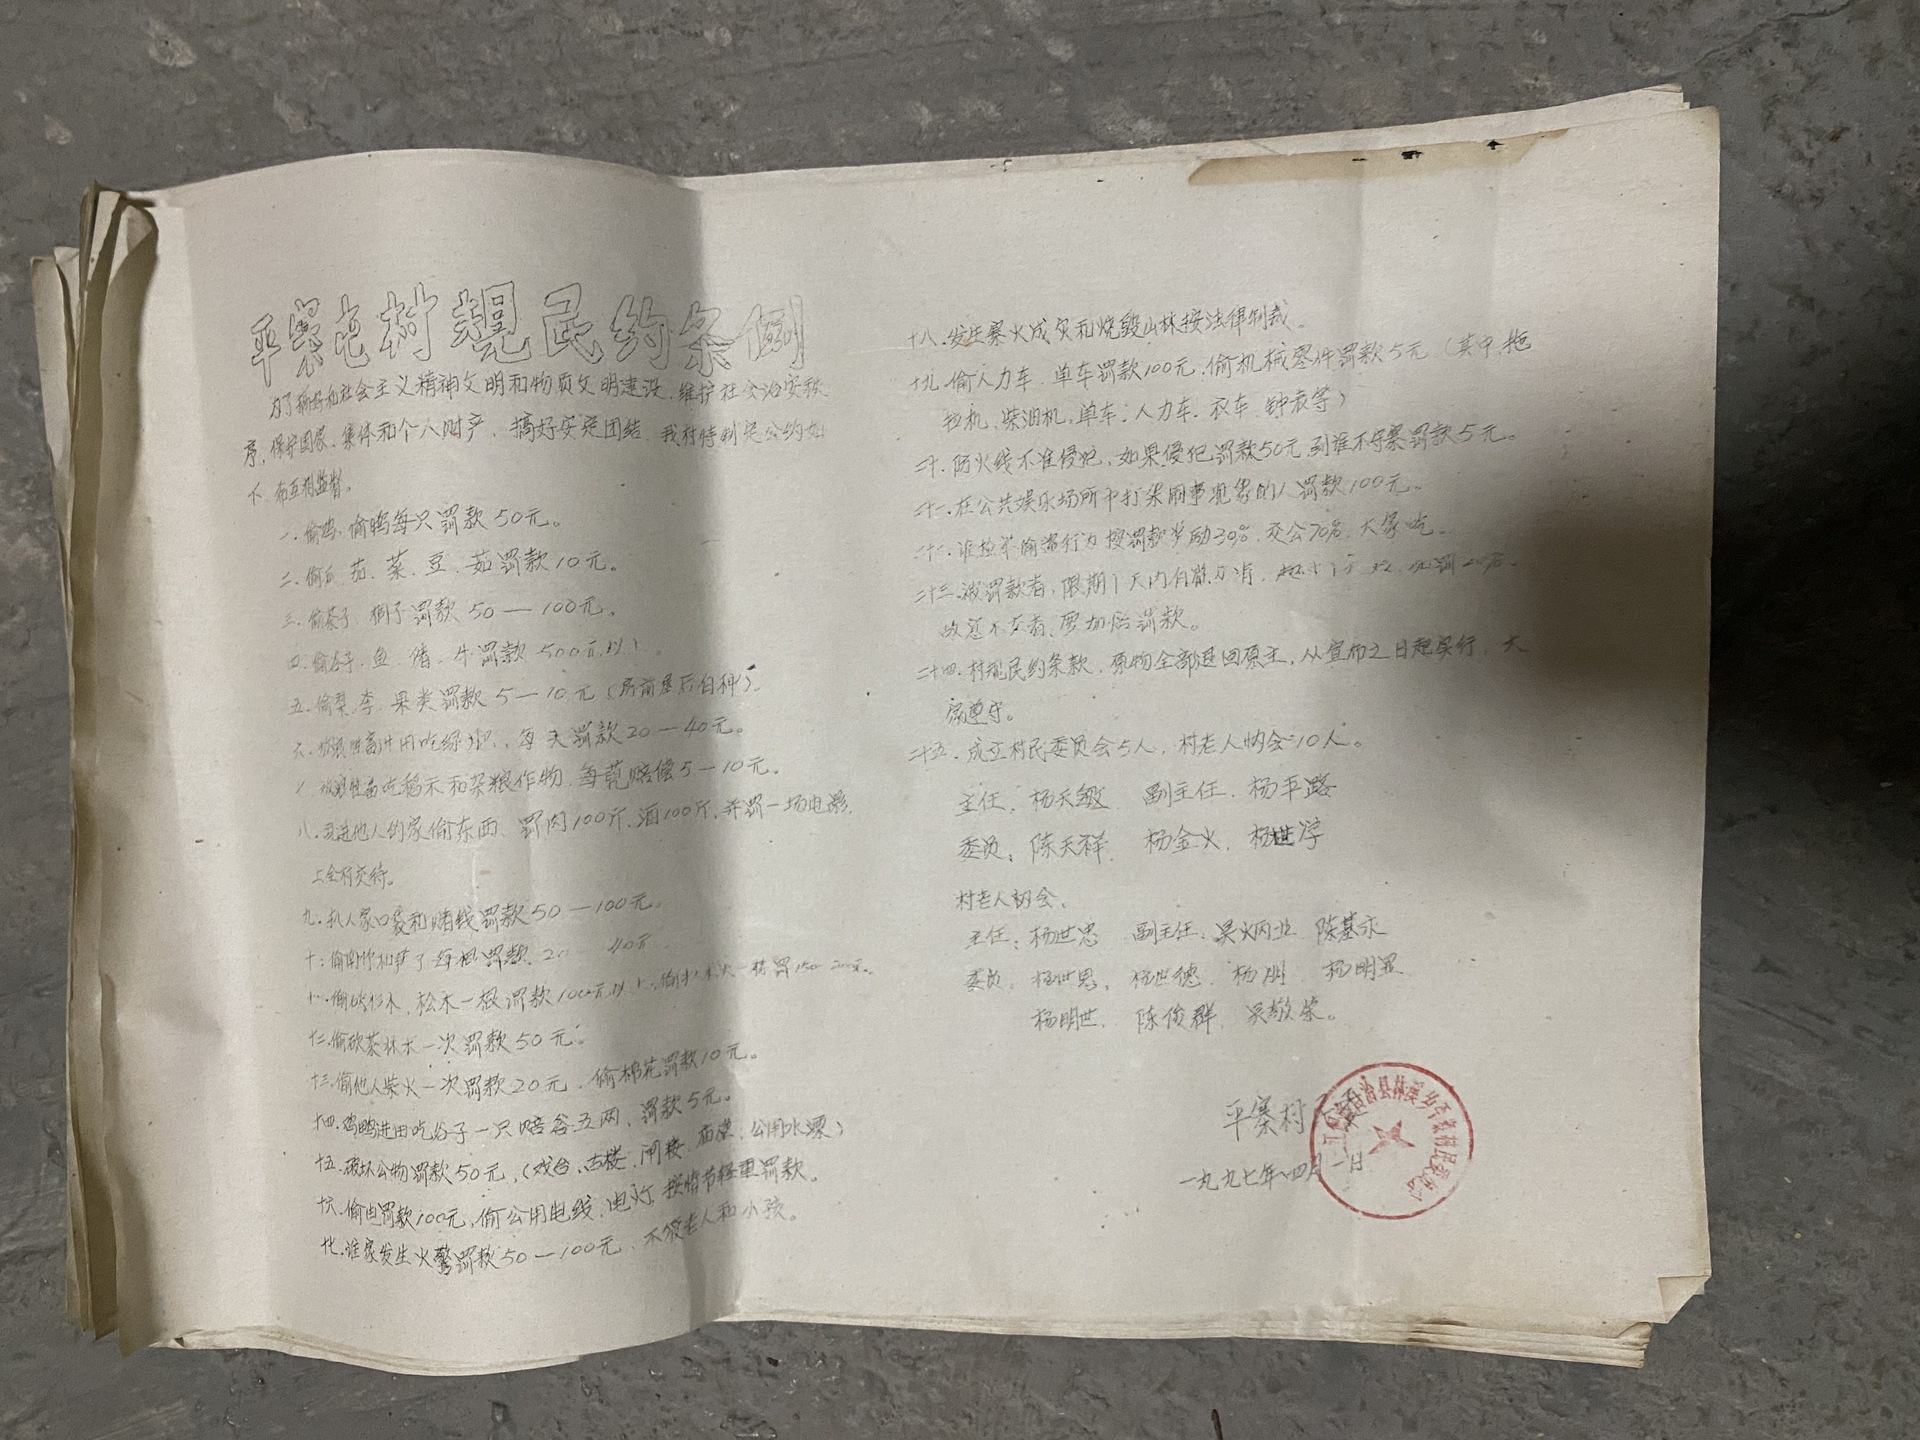 平寨屯村规民约条例
为了搞好社会主义精神文明和物质文明建设,维护社会治安秩
序,保护国家、集体和个人财产,搞好安定团结,我村特制定公约如
下,希互相监督。
一.偷鸡、偷鸭每只罚款50元。
二.偷瓜、茄、菜、豆、茹罚款10元。
三.偷茶子、桐子罚款50—100元。
四.偷谷子、鱼、猪、牛罚款500元以上。
五.偷梨、李、果类罚款5—10元(房前屋后自种)。
每天罚款20—40元。
吃稻禾和杂粮作物,每蔸赔偿5—10元。
八.进他人的家偷东西,罚肉100斤,酒100斤,并罚一场电影.
上全村交待。
九.扒人家口袋和赌钱罚款50—100元。
每根罚款20 40元
松木一根罚款100元以上
十二.偷砍茶林木一次罚款50元。
十三.偷他人柴火一次罚款20元,偷棉花罚款10元。
十四.鸡鸭进田吃谷子一只赔谷五两,罚款5元。
十五.破坏公物罚款50元,(戏台、古楼、闸楼、庙堂、公用水漂)
十六.偷电罚款100元,偷公用电线、电灯按情节轻重罚款。
十七.谁家发生火警罚款50—100元,不管老人和小孩。
十八.发生寨火成灾和烧毁山林按法律制裁。
十九.偷人力车、单车罚款100元,偷机械零件罚款5元(其中,拖
拉机、柴油机、单车、人力车、衣车、钟表等)
二十.防火线不准侵犯,如果侵犯罚款50元,到谁不守寨罚款5元。
二十一.在公共娱乐场所中打架闹事犯罪的人罚款100元。
二十二.谁检举偷盗行为按罚款奖励30%,交公70%,大家吃。
二十三.被罚款者,限期1天内
故意不交者,要加倍罚款。
二十四.村规民约条款,原物全部退回原主,从宣布之日起实行,大
家遵守。
二十五.成立村民委员会5人,村老人协会10人。
主任:杨天敏 副主任.杨平路
委员:陈天祥、杨金火、杨世淳
村老人协会.
主任:杨世忠 副主任:吴火丙业 陈基永
委员:杨世恩、杨世德、杨朋、杨明显
杨明世、陈俊群、吴敬荣。
平寨村
自治县林溪乡平寨村民委员会
一九九七年四月一日